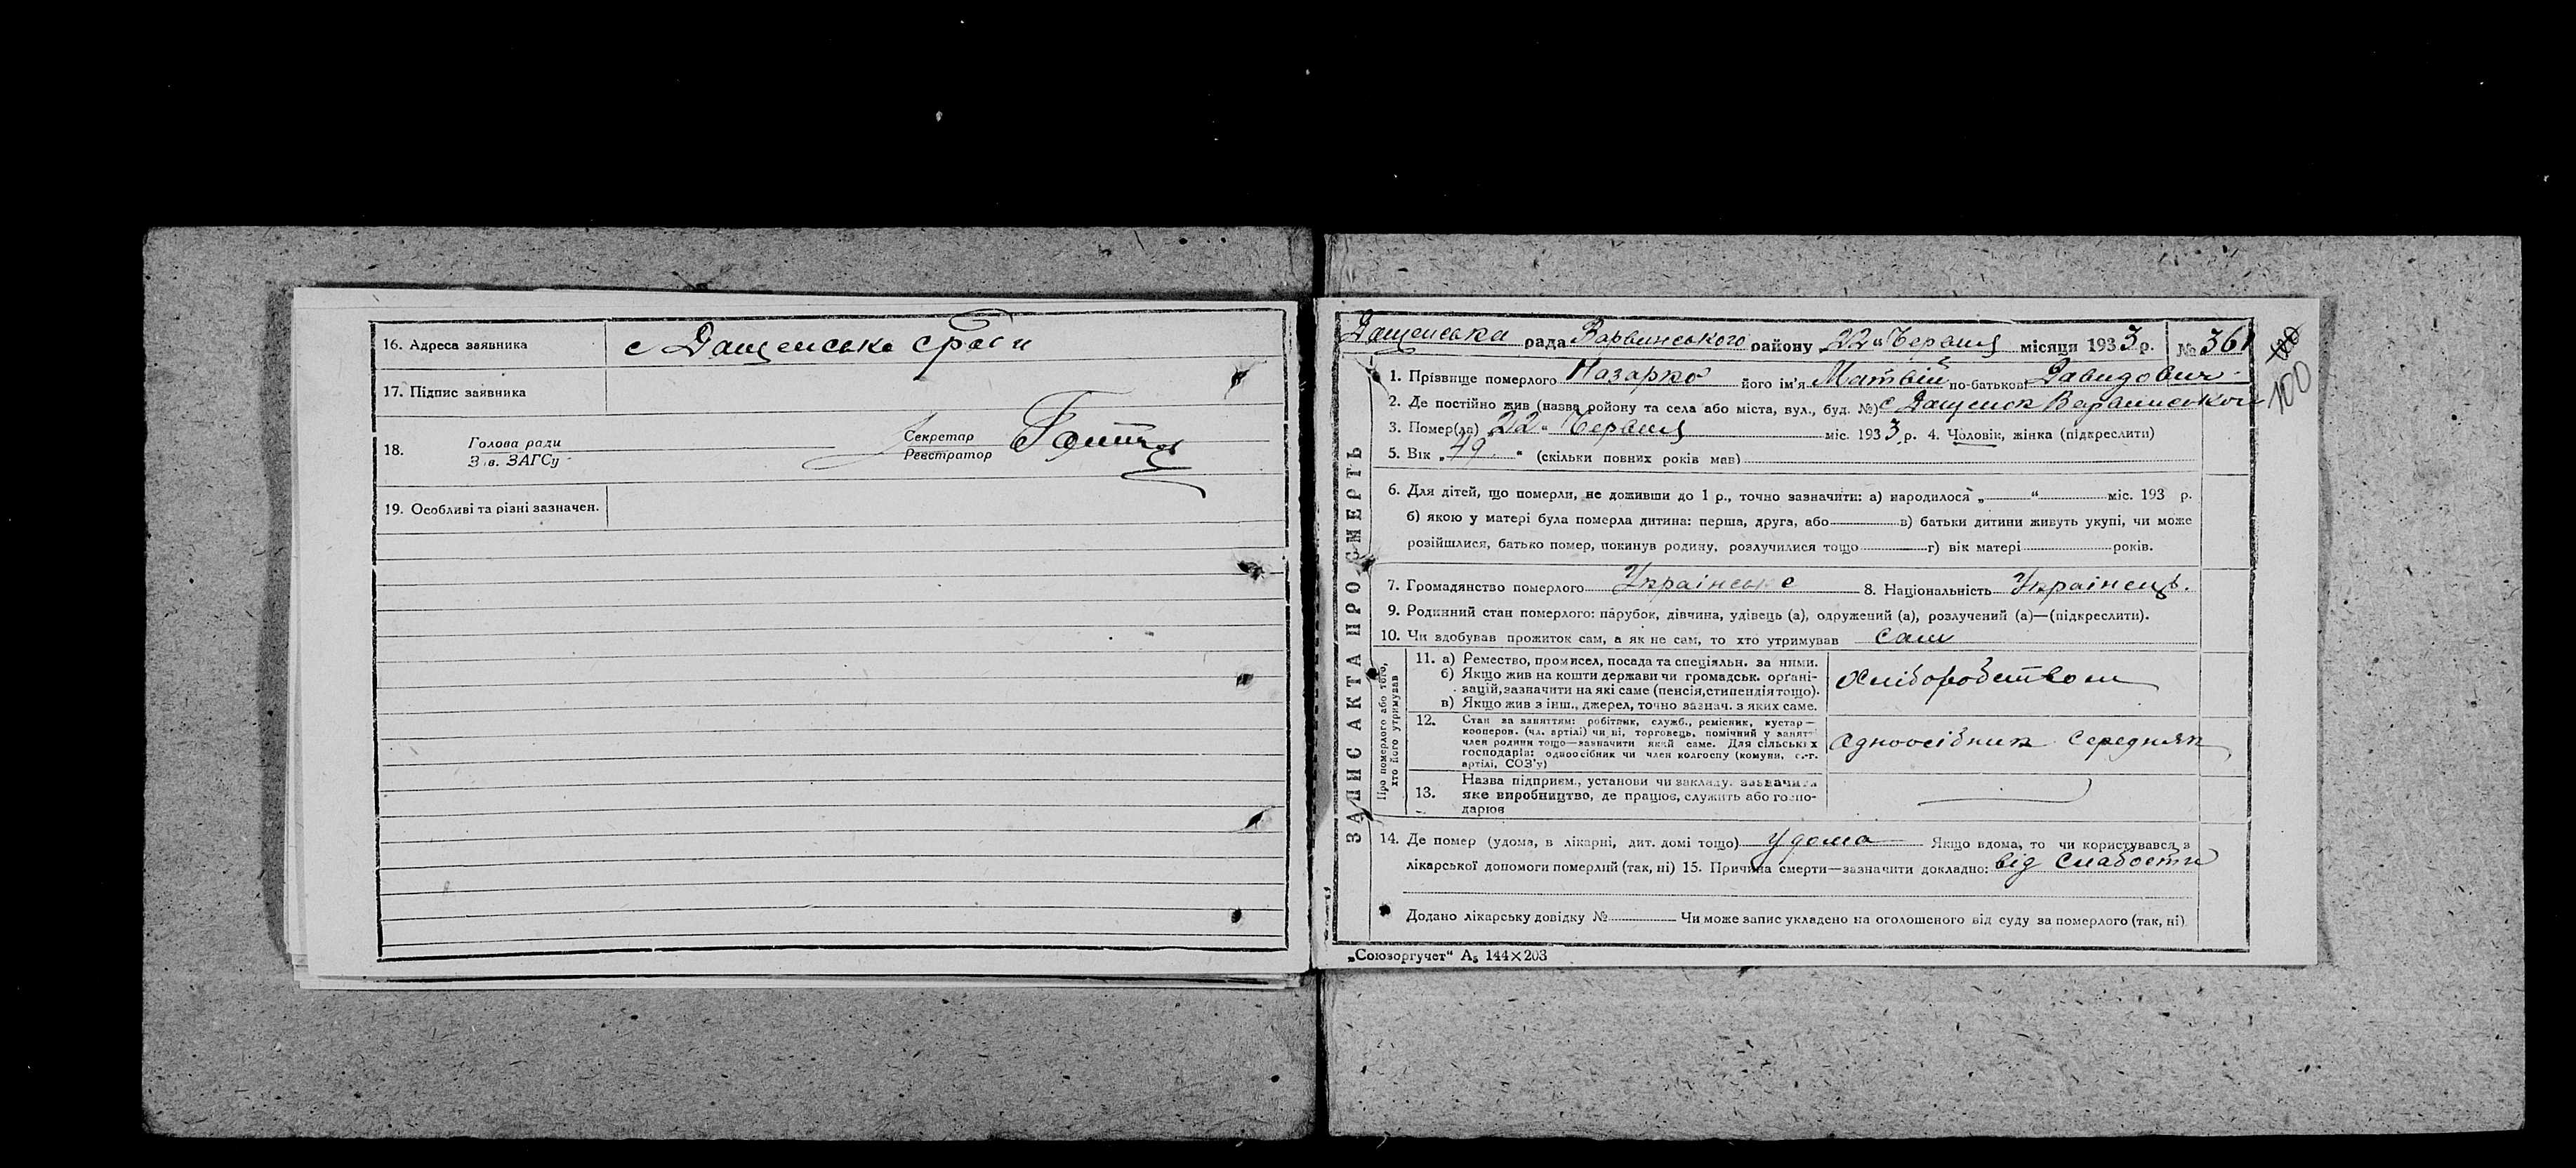 16. Адреса заявника с Дащенсько сради
17. Підпис заявника
18. Голова ради
З в. ЗАГСу
Секретар
Реєстратор
19. Особливі та різні зазначен.
Дащенська рада Варвинського району 22 "Червня місяця 1933 р. № 361
100
ЗАПИС АКТА ПРО СМЕРТЬ
1. Прізвище померлого Назарко його ім'я Матвій по-батькові Давидович
2. Де постійно жив (назва ройону та села або міста, вул., буд. №) с Дащенок Варвинського
3. Помер(ла) „22" Червня міс. 1933 р. 4. Чоловік, жінка (підкреслити)
5. Вік „49" (скільки повних років мав)
6. Для дітей, що померли, не доживши до 1 р., точно зазначити: а) народилося „ " міс. 193 р.
б) якою у матері була померла дитина: перша, друга, або в) батьки дитини живуть укупі, чи може
розійшлися, батько помер, покинув родину, розлучилися тощо г) вік матері років.
7. Громадянство померлого Українське 8. Національність Українець.
9. Родинний стан померлого: парубок, дівчина, удівець (а), одружений (а), розлучений (а)—(підкреслити).
10. Чи здобував прожиток сам, а як не сам, то хто утримував сам
Про померлого або того, хто його утримував
11. а) Ремество, промисел, посада та спеціяльн. за ними.
б) Якщо жив на кошти держави чи громадськ. орґані-
зацій, зазначити на які саме (пенсія, стипендія тощо).
в) Якщо жив з інш., джерел, точно зазнач. з яких саме.
Хліборобством
12. Стан за заняттям: робітник, служб., ремісник, кустар—
кооперов. (чл. артілі) чи ні, торговець, помічний у занят
член родини тощо—зазначити який саме. Для сільських
господарів: одноосібник чи член колгоспу (комуни, с.-г.
артілі, СОЗ'у)
одноосібник середняк
13. Назва підприєм., установи чи закладу. зазначити
яке виробництво, де працює, служить або госпо-
дарює
14. Де помер (удома, в лікарні, дит. домі тощо) удома Якщо вдома, то чи користувався в
лікарської допомоги померлий (так, ні) 15. Причина смерти—зазначити докладно: від слабости
Додано лікарську довідку № Чи може запис укладено на оголошеного від суду за померлого (так, ні)
„Союзоргучет" А5 144×203